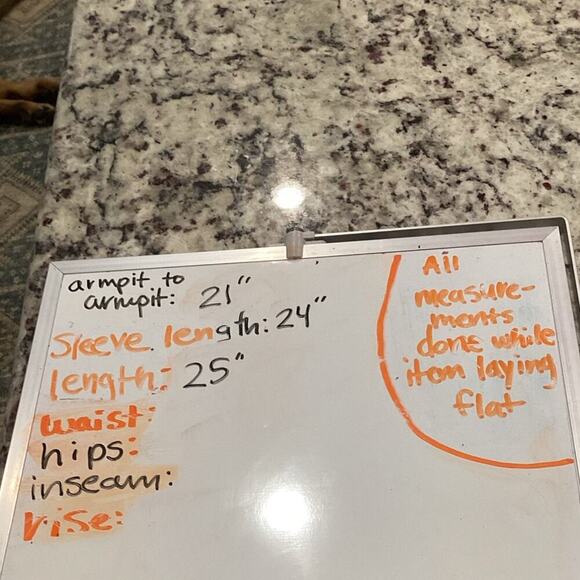 armpit to
armpit: 21"
Sleeve length: 24"
length: 25"
waist:
hips:
inseam:
rise:
All
measure-
ments
done while
item laying
flat